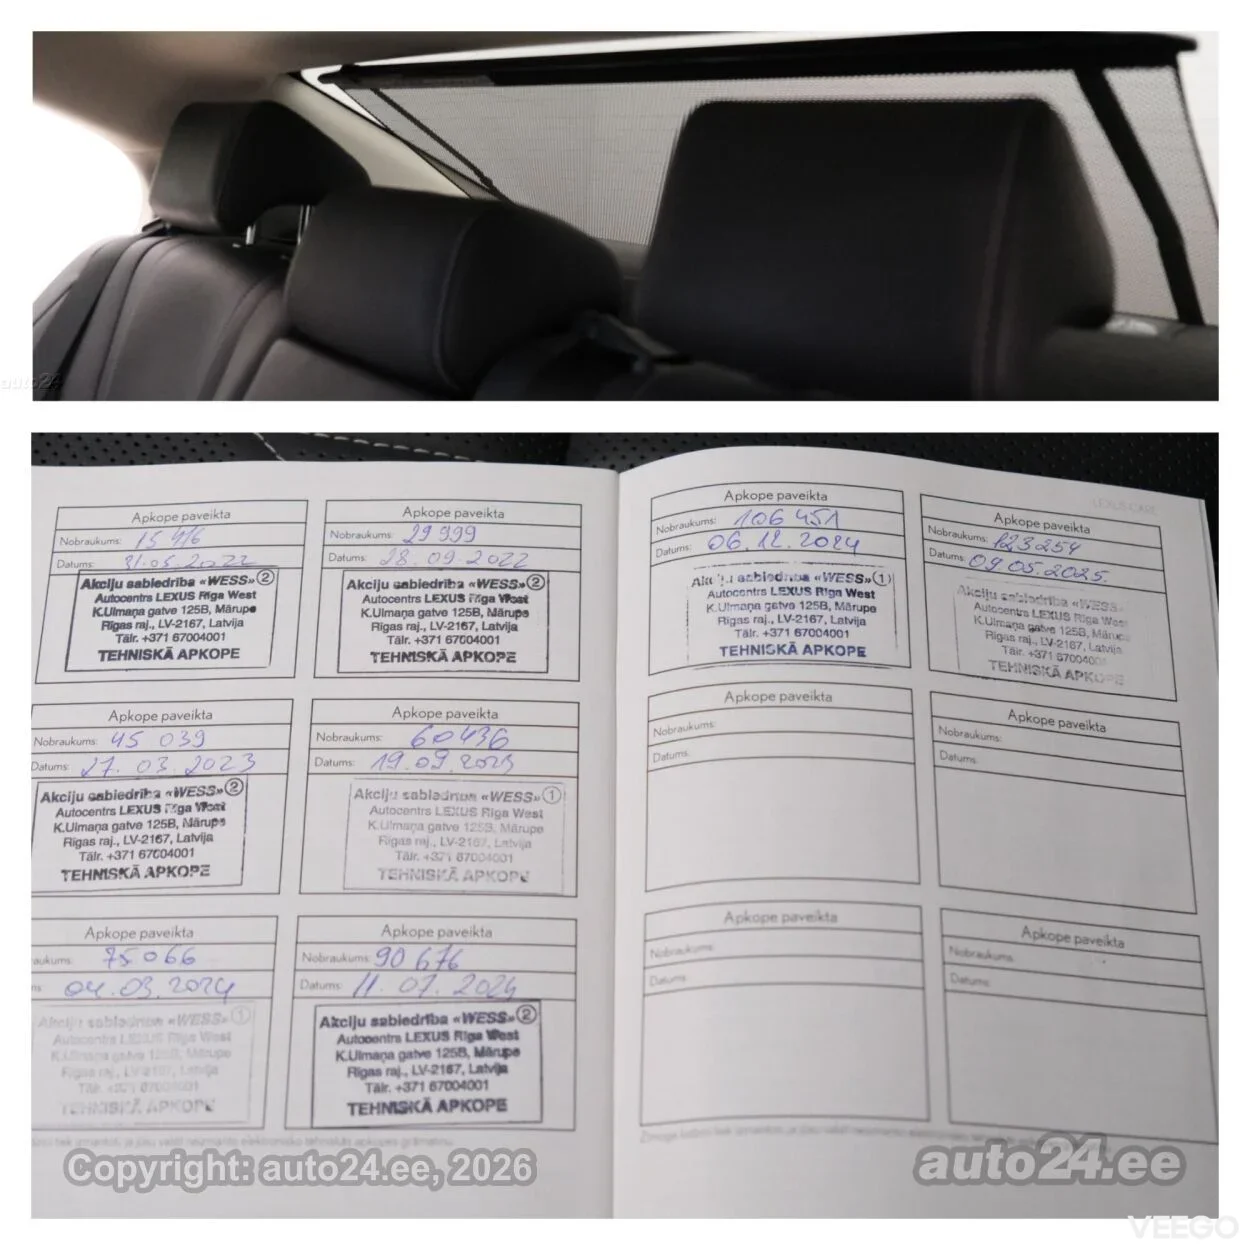 auto24
LEXUS CARE
Apkope paveikta
Nobraukums: 15 416
Datums: 31.05.2022
Akciju sabiedrība «WESS» 2
Autocentrs LEXUS Rīga West
K.Ulmaņa gatve 125B, Mārupe
Rīgas raj., LV-2167, Latvija
Tālr. +371 67004001
TEHNISKĀ APKOPE
Apkope paveikta
Nobraukums: 29 999
Datums: 28.09.2022
Akciju sabiedrība «WESS» 2
Autocentrs LEXUS Rīga West
K.Ulmaņa gatve 125B, Mārupe
Rīgas raj., LV-2167, Latvija
Tālr. +371 67004001
TEHNISKĀ APKOPE
Apkope paveikta
Nobraukums: 45 039
Datums: 27.03.2023
Akciju sabiedrība «WESS» 2
Autocentrs LEXUS Rīga West
K.Ulmaņa gatve 125B, Mārupe
Rīgas raj., LV-2167, Latvija
Tālr. +371 67004001
TEHNISKĀ APKOPE
Apkope paveikta
Nobraukums: 60436
Datums: 19.09.2023
Akciju sabiedrība «WESS» 1
Autocentrs LEXUS Rīga West
K.Ulmaņa gatve 125B, Mārupe
Rīgas raj., LV-2167, Latvija
Tālr. +371 67004001
TEHNISKĀ APKOPE
Apkope paveikta
aukums: 75066
ms: 04.03.2024
Akciju sabiedrība «WESS» 1
Autocentrs LEXUS Rīga West
K.Ulmaņa gatve 125B, Mārupe
Rīgas raj., LV-2167, Latvija
Tālr. +371 67004001
TEHNISKĀ APKOPE
Apkope paveikta
Nobraukums: 90 676
Datums: 11.07.2024
Akciju sabiedrība «WESS» 2
Autocentrs LEXUS Rīga West
K.Ulmaņa gatve 125B, Mārupe
Rīgas raj., LV-2167, Latvija
Tālr. +371 67004001
TEHNISKĀ APKOPE
Apkope paveikta
Nobraukums: 106 451
Datums: 06.12.2024
Akciju sabiedrība «WESS» 1
Autocentrs LEXUS Rīga West
K.Ulmaņa gatve 125B, Mārupe
Rīgas raj., LV-2167, Latvija
Tālr. +371 67004001
TEHNISKĀ APKOPE
Apkope paveikta
Nobraukums: 123254
Datums: 09.05.2025.
Akciju sabiedrība «WESS»
Autocentrs LEXUS Rīga West
K.Ulmaņa gatve 125B, Mārupe
Rīgas raj., LV-2167, Latvija
Tālr. +371 6700400
TEHNISKĀ APKOPE
Apkope paveikta
Nobraukums:
Datums:
Apkope paveikta
Nobraukums:
Datums:
Apkope paveikta
Nobraukums:
Datums:
Apkope paveikta
Nobraukums:
Datums:
Copyright: auto24.ee, 2026
auto24.ee
VEEGO